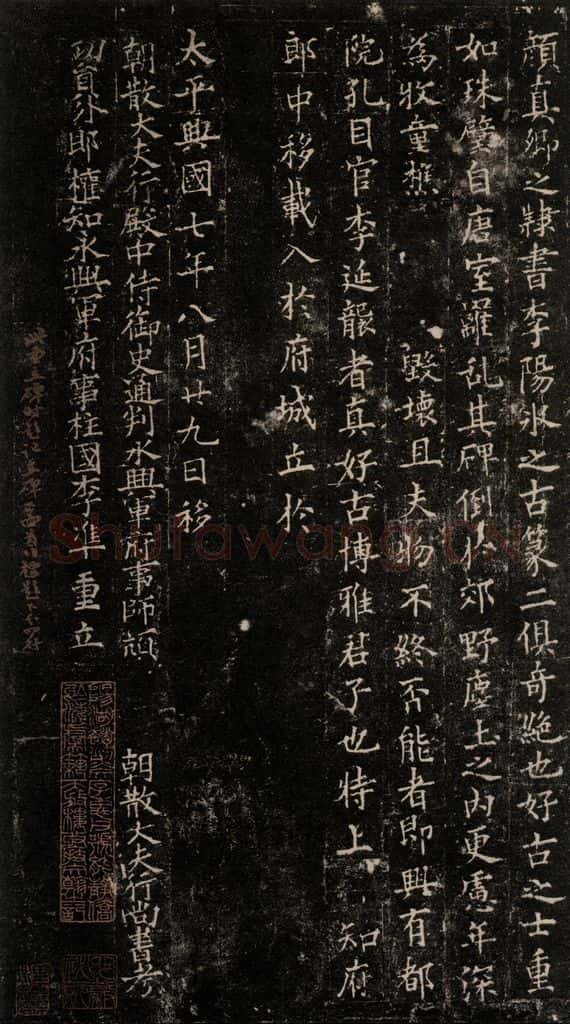 顔真卿之隸書李陽氷之古篆二俱奇絶也好古之士重
如珠璧自唐室離乱其碑倒於郊野塵土之内更慮年深
為牧童樵 毀壞且夫物不終否能者即興有都
院孔目官李延襲者真好古博雅君子也特上 知府
郎中移載入於府城立於
太平興國七年八月廿九日移
朝散大夫行殿中侍御史通判永興軍府事師頏 朝散大夫行尚書考
功員外郎權知永興軍府事柱國李準重立
Shufawang.CN